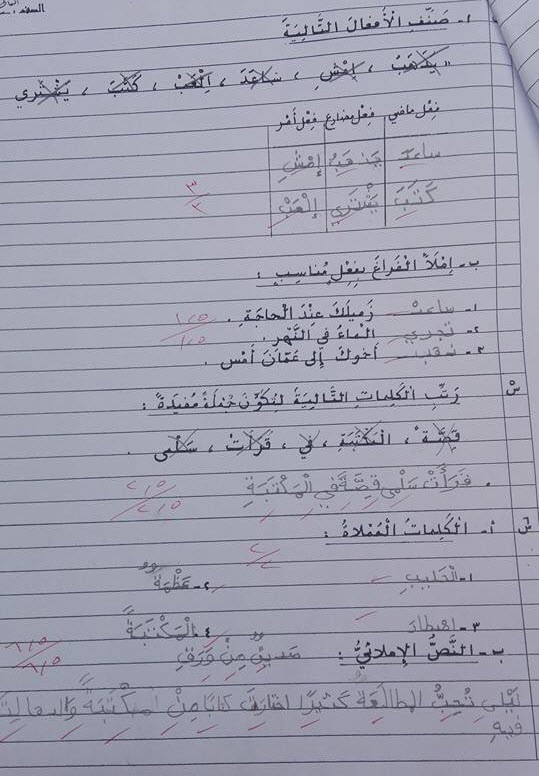 أ- صَنِّفِ الْأَفْعَالَ التَّالِيَةَ
" يَذْهَبُ ، اِمْشِ ، سَاعَدَ ، اِلْعَبْ ، كَتَبَ ، يَشْتَري
فِعْل ماضي فِعْل مضارع فِعْل أَمْر
ساعدَ يَذهَبُ إمْشِ
كَتَبَ يَشْتَري إلْعَبْ
٣/٣
ب- اِمْلَأ الْفَراغَ بِفِعْلٍ مُناسِبٍ :
١- زَميلَكَ عِنْدَ الْحاجَةِ .
٢- تجري الْماءُ في النَّهْرِ .
٣- أَخوكَ إِلى عَمّانَ أَمْس .
١،٥/١،٥
س رَتِّبِ الْكَلِماتِ التَّالِيَةَ لِتُكَوِّنَ جُمْلَةً مُفيدَةً :
قِصَّةً ، الْمَكْتَبَةِ ، في ، قَرَأَتْ ، سَلْمى .
قَرَأَتْ سَلْمى قِصَّةً في الْمَكْتَبَةِ .
٢،٥/٢،٥
س أ- الْكَلِماتُ الْمُمْلاةُ :
٢/٢
١- الْحَليبِ ٢- عَظْمَةٌ
٣- ٤- الْمَكْتَبَةً
ب- النَّصُّ الإِملائِيُّ : مِنْ وَرَقٍ
٦،٥/٦،٥
لَيْلى تُحِبُّ الْمطالَعَةَ كَثيرًا اختارَتْ كتابًا مِنْ
فيهِ